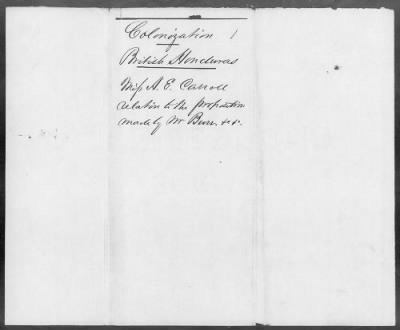 Colonization 1
British Honduras
Miss A. E. Carroll
relation to the proposition
made by Mr Burr, &c.